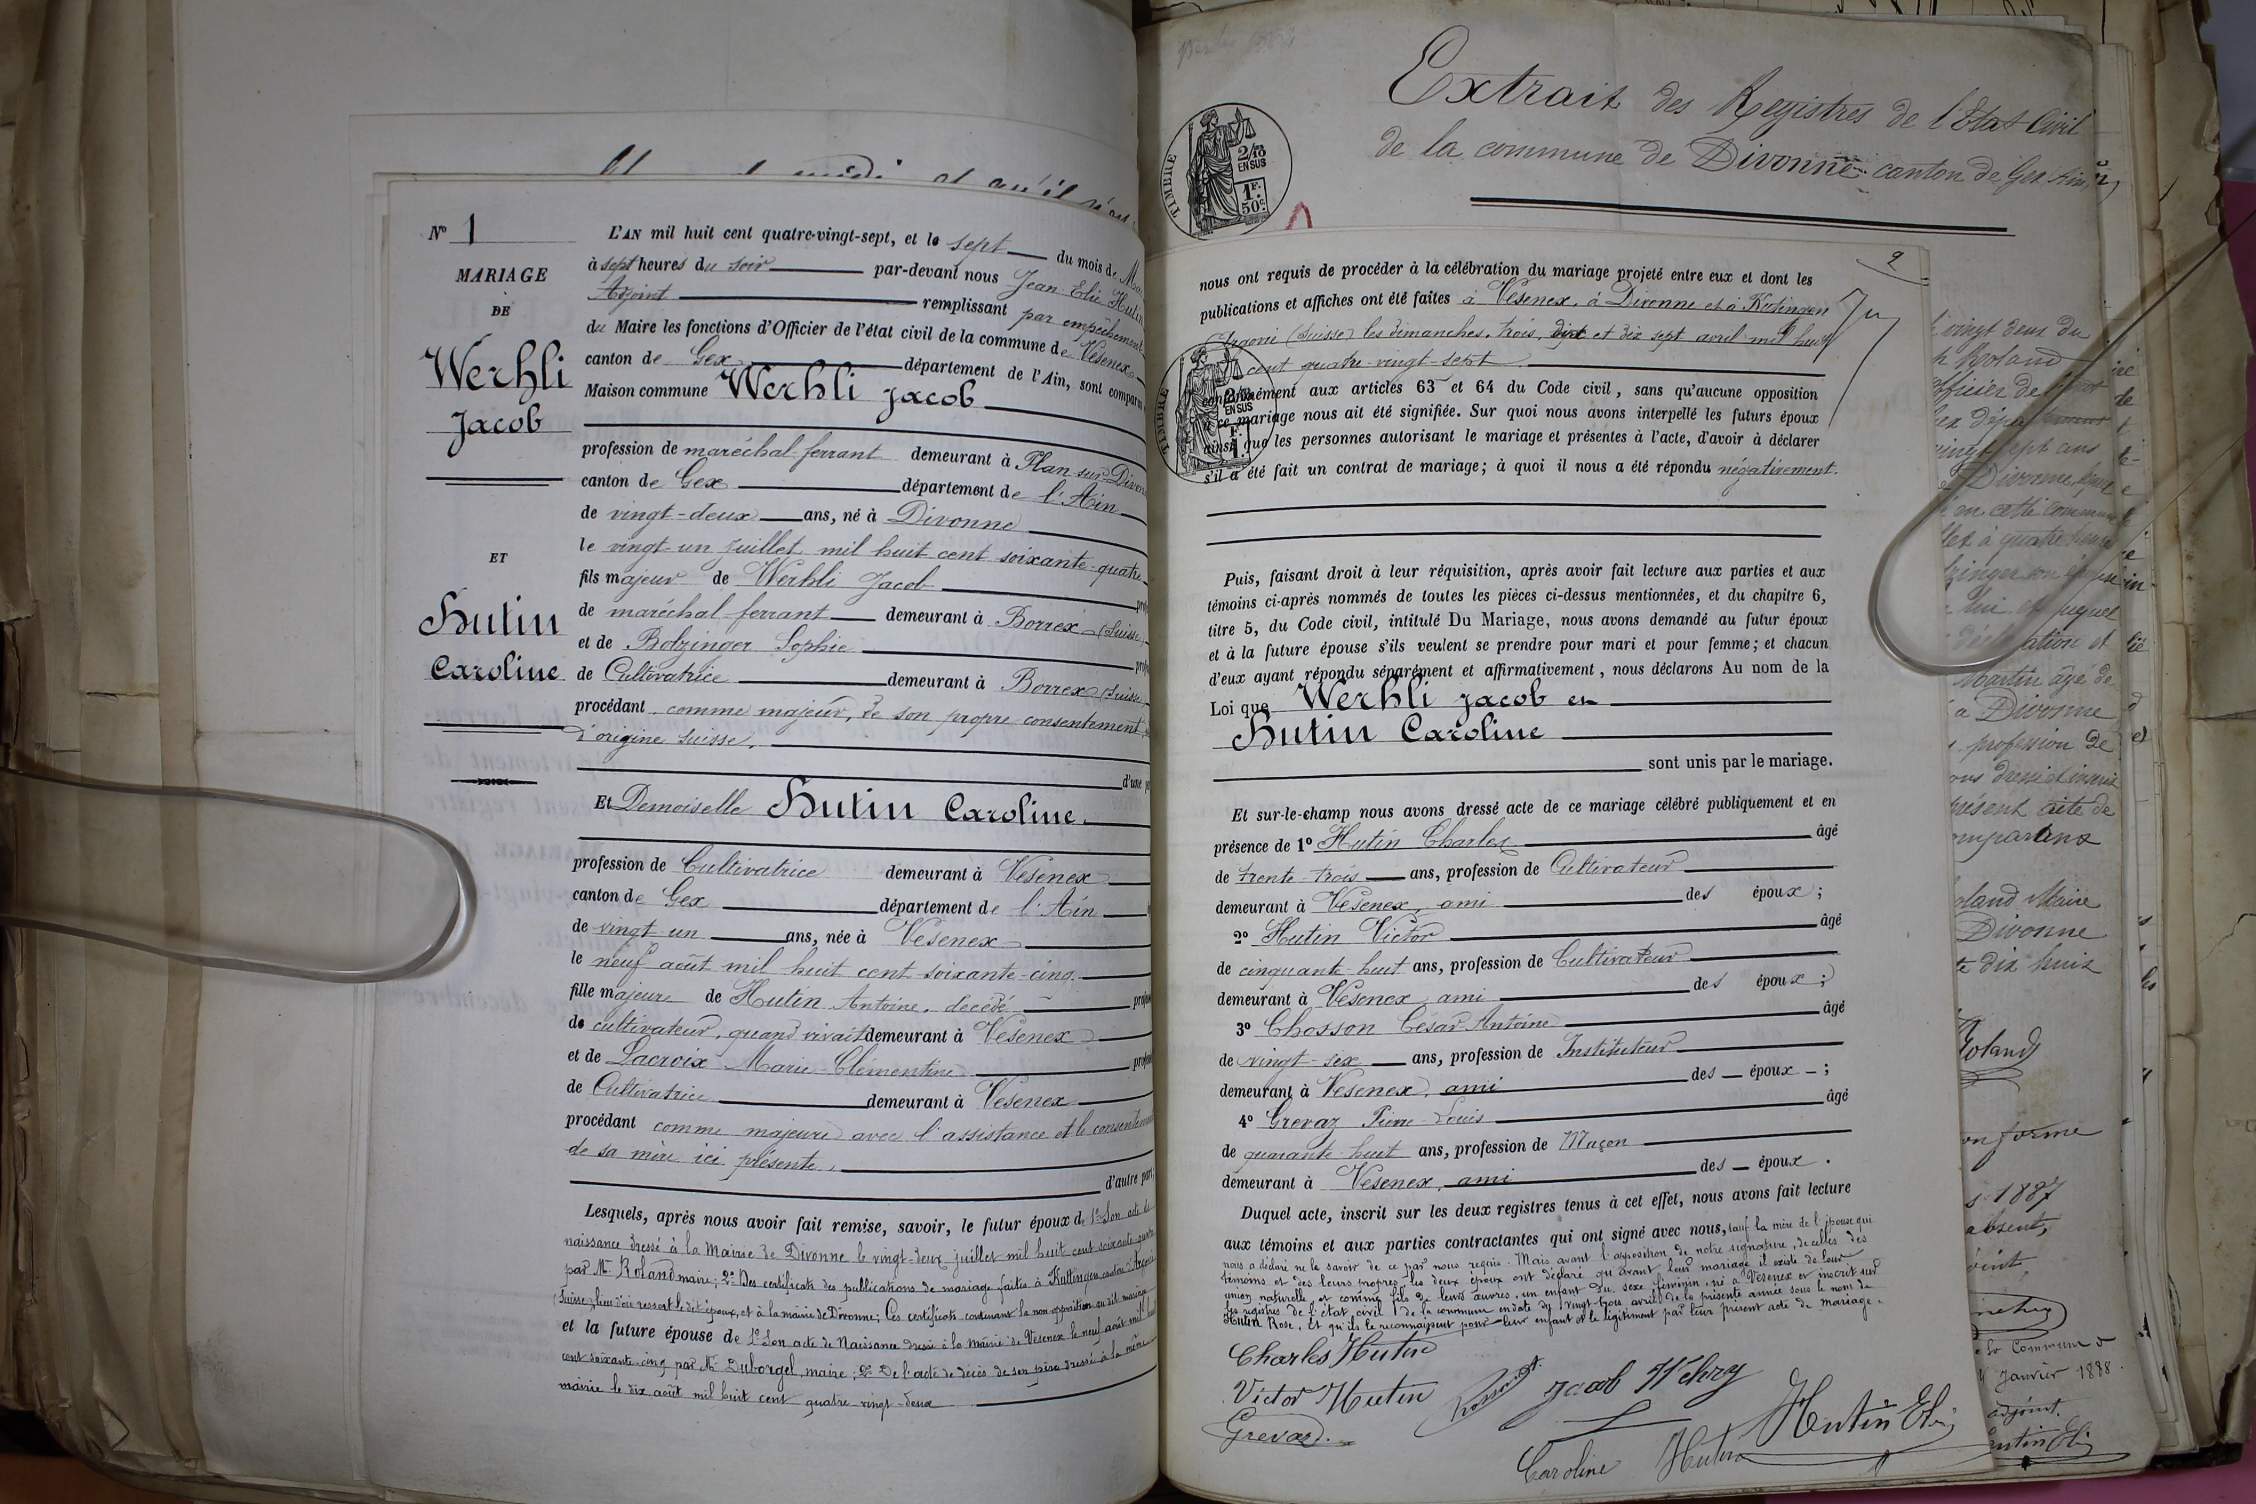 N° 1
MARIAGE
DE
Werhli
Jacob
ET
Hutin
Caroline
L'AN mil huit cent quatre-vingt-sept, et le sept du mois de
à sept heures du soir par-devant nous Jean Elie Hutin
Adjoint remplissant par empêchement
du Maire les fonctions d'Officier de l'état civil de la commune de Vesenex
canton de Gex département de l'Ain, sont comparus
Maison commune Werhli Jacob
profession de maréchal-ferrant demeurant à Plan-sur-Divonne
canton de Gex département de l'Ain
de vingt-deux ans, né à Divonne
le vingt-un juillet mil huit cent soixante-quatre
fils majeur de Werhli Jacob
de maréchal-ferrant demeurant à Borrex (Suisse)
et de Botzinger Sophie
de Cultivatrice demeurant à Borrex (Suisse)
procédant comme majeur, de son propre consentement
d'origine suisse.
d'une
Et Demoiselle Hutin Caroline.
profession de Cultivatrice demeurant à Vesenex
canton de Gex département de l'Ain
de vingt-un ans, née à Vesenex
le neuf août mil huit cent soixante-cinq
fille majeure de Hutin Antoine, décédé
de cultivateur, quand vivait demeurant à Vesenex
et de Lacroix Marie-Clémentine
de Cultivatrice demeurant à Vesenex
procédant comme majeure avec l'assistance et le consentement
de sa mère ici présente,
d'autre part;
Lesquels, après nous avoir fait remise, savoir, le futur époux de 1° Son acte de
naissance dressé à la Mairie de Divonne le vingt-deux juillet mil huit cent soixante-quatre
par Mr Roland maire; 2° Des certificats des publications de mariage faites à Küttingen, canton d'Argovie
(Suisse) lieu d'où ressort le dit époux, et à la mairie de Divonne; Ces certificats contenant la non opposition au dit mariage
et la future épouse de 1° Son acte de Naissance dressé à la mairie de Vesenex le neuf août mil huit
cent soixante-cinq par Mr Duborgel, maire; 2° De l'acte de décès de son père dressé à la même
mairie le dix août mil huit cent quatre-vingt-deux
Extrait des Registres de l'Etat Civil
de la commune de Divonne canton de Gex Ain
TIMBRE
2/10
EN SUS
1F.
50c.
2
nous ont requis de procéder à la célébration du mariage projeté entre eux et dont les
publications et affiches ont été faites à Vesenex, à Divonne et à Kutingen
Argovie (Suisse) les dimanches, trois, dix et dix sept avril mil huit
cent quatre-vingt-sept
conformément aux articles 63 et 64 du Code civil, sans qu'aucune opposition
à ce mariage nous ait été signifiée. Sur quoi nous avons interpellé les futurs époux
ainsi que les personnes autorisant le mariage et présentes à l'acte, d'avoir à déclarer
s'il a été fait un contrat de mariage; à quoi il nous a été répondu négativement.
Puis, faisant droit à leur réquisition, après avoir fait lecture aux parties et aux
témoins ci-après nommés de toutes les pièces ci-dessus mentionnées, et du chapitre 6,
titre 5, du Code civil, intitulé Du Mariage, nous avons demandé au futur époux
et à la future épouse s'ils veulent se prendre pour mari et pour femme; et chacun
d'eux ayant répondu séparément et affirmativement, nous déclarons Au nom de la
Loi que Werhli Jacob et
Hutin Caroline
sont unis par le mariage.
Et sur-le-champ nous avons dressé acte de ce mariage célébré publiquement et en
présence de 1° Hutin Charles âgé
de trente-trois ans, profession de Cultivateur
demeurant à Vesenex, ami des époux;
2° Hutin Victor âgé
de cinquante-huit ans, profession de Cultivateur
demeurant à Vesenex, ami des époux;
3° Chosson César-Antoine âgé
de vingt-six ans, profession de Instituteur
demeurant à Vesenex, ami des époux;
4° Grevaz Pierre-Louis âgé
de quarante-huit ans, profession de Maçon
demeurant à Vesenex, ami des époux.
Duquel acte, inscrit sur les deux registres tenus à cet effet, nous avons fait lecture
aux témoins et aux parties contractantes qui ont signé avec nous, sauf la mère de l'épouse qui
nous a déclaré ne le savoir de ce par nous requis. Mais avant l'apposition de notre signature, de celles des
témoins et des leurs propres les deux époux ont déclaré qu'avant leur mariage il existe de leur
union naturelle, et comme fils de leurs œuvres, un enfant du sexe féminin, né à Vesenex et inscrit sur
les registres de l'état civil de la commune en date du vingt-trois avril de la présente année sous le nom de
Hutin Rose. Et qu'ils le reconnaissent pour leur enfant et le légitiment par leur présent acte de mariage.
Charles Hutin
Victor Hutin Jacob Wehry
Grevaz. Caroline Hutin Hutin Elie
vingt deux du
Roland
officier de
vingt sept ans
Divonne
en cette commune
à quatre heures
Martin âgé de
à Divonne
profession de
présent acte de
comparans
Roland Maire
Divonne
dix huit
Roland
conforme
1887
absent,
la Commune
Janvier 1888.
adjoint.
Hutin Elie